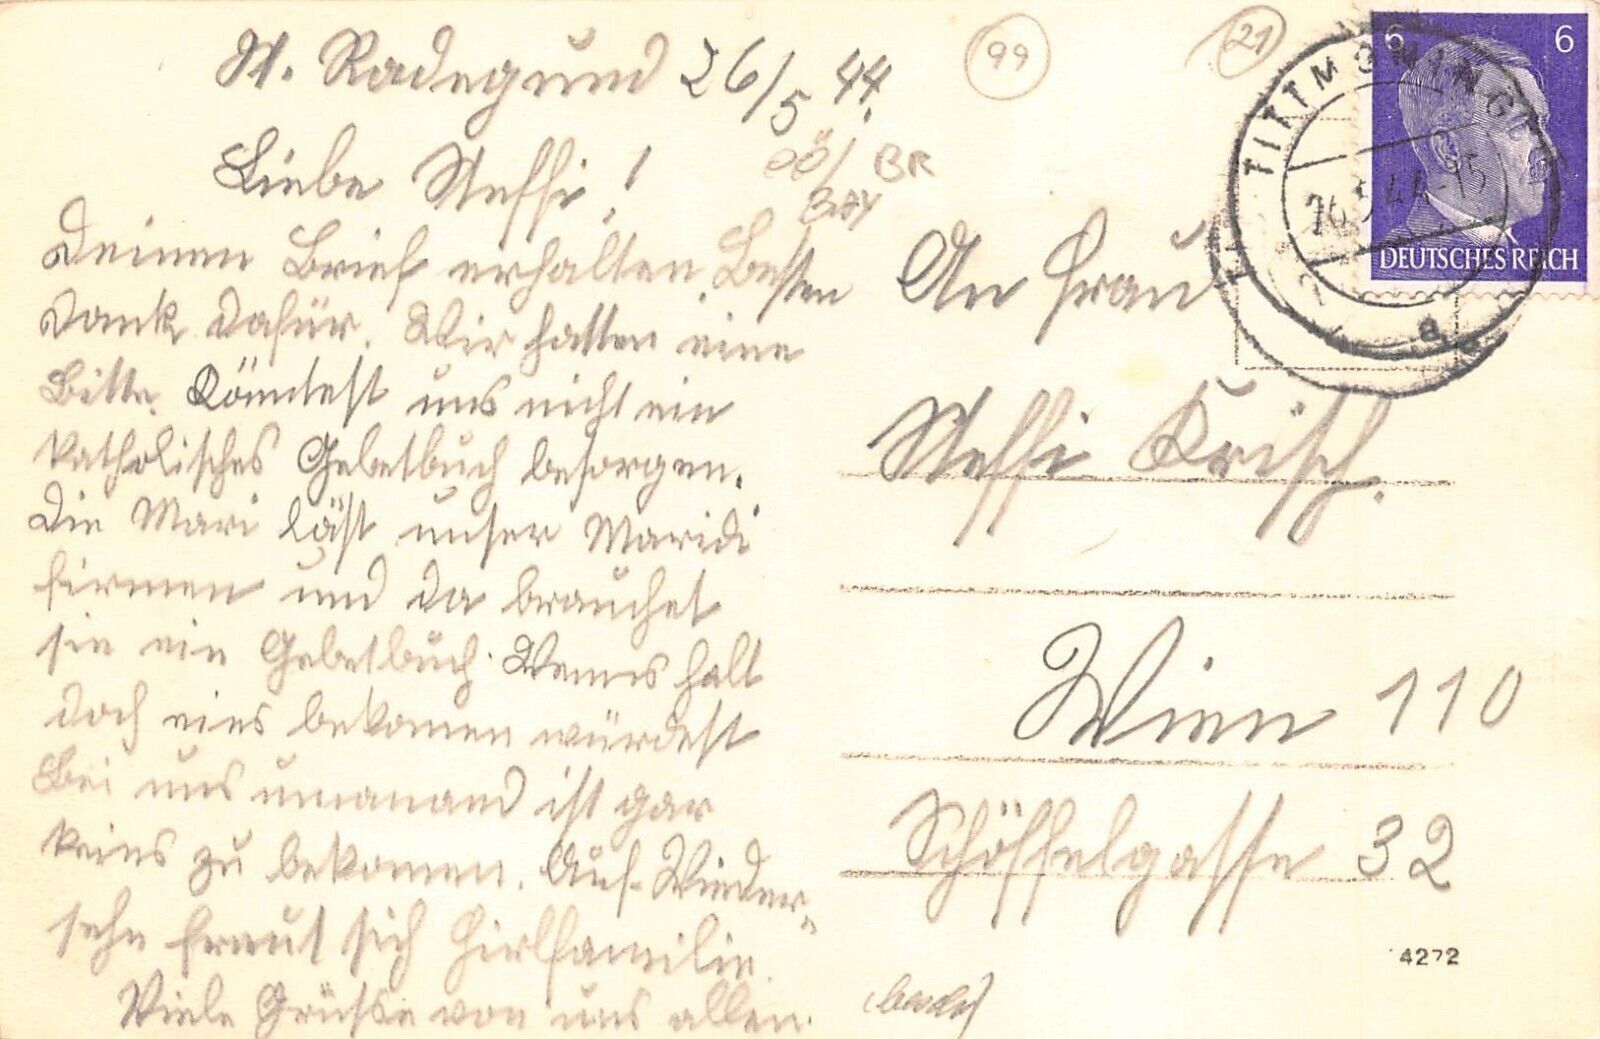 St. Radegund 26/5 44.
Liebe Steffi!
Deinen Brief erhalten. Besten
Dank dafür. Wir hatten eine
Bitte. Könntest uns nicht ein
katholisches Gebetbuch besorgen.
Die Mari läst unser Maridi
firmen und da brauchet
sie ein Gebetbuch. Wenns halt
doch eins bekomen würdest
Bei uns umanand ist gar
keins zu bekomen. Auf Wieder-
sehn freut sich Hirlfamilie.
Viele Grüße von uns allen.
99
21
OÖ/ BR
BAY
6 6
DEUTSCHES REICH
TITTMONING
26.5.44-15
a
An Frau
Steffi Krisch.
Wien 110
Schöffelgasse 32
4272